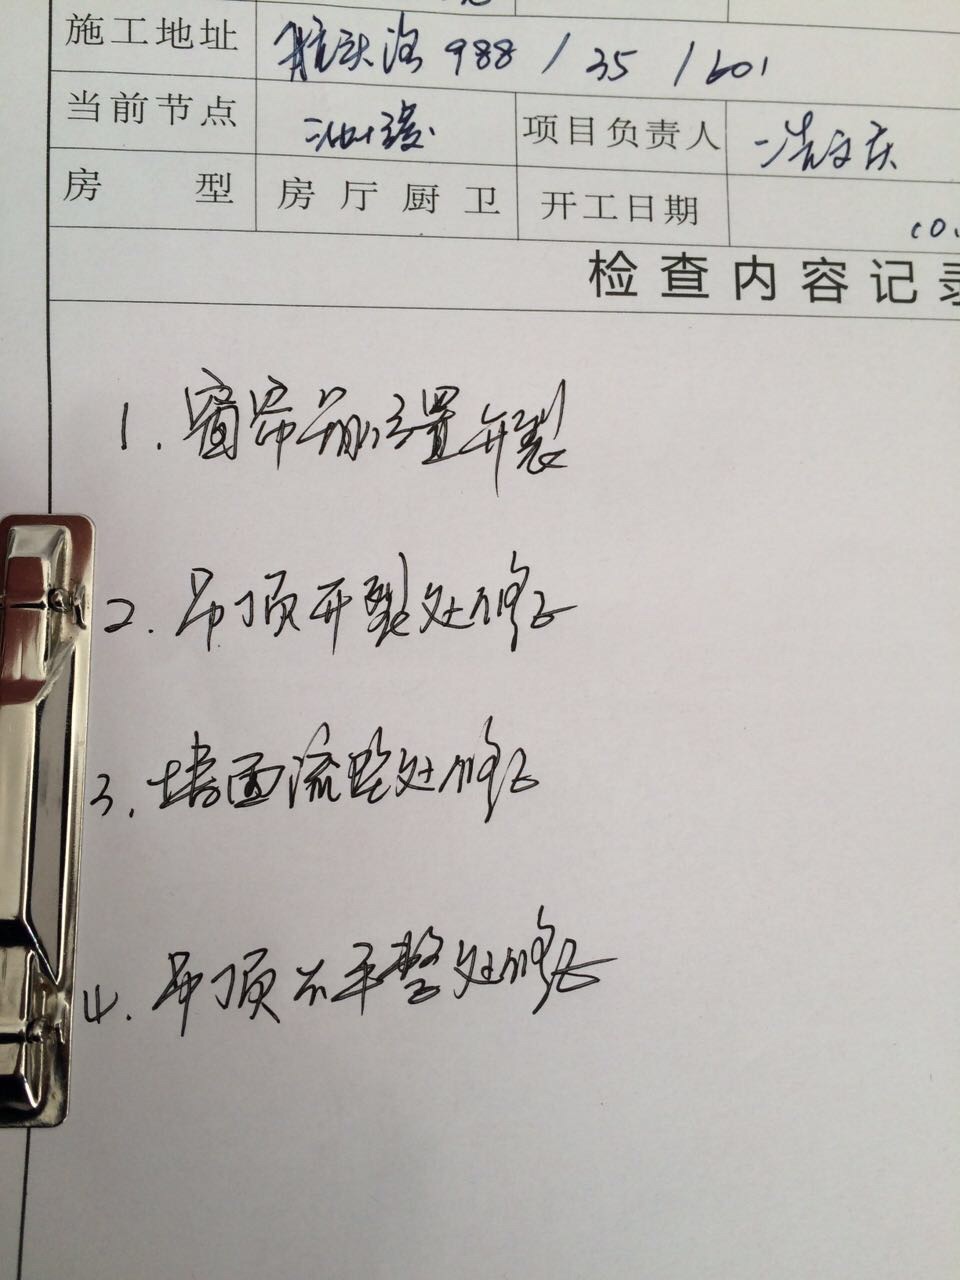 施工地址 航头路 988 / 35 / 601
当前节点 油漆 项目负责人
房 型 房 厅 厨 卫 开工日期 10.
检查内容记录
1. 窗帘箱位置开裂
2. 吊顶开裂处修正
3. 墙面流坠处修正
4. 吊顶不平整处修正